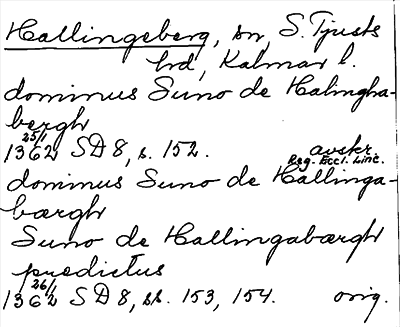 Hallingeberg, sn, S. Tjusts
hd, Kalmar l.
dominus Suno de Halingha-
bergh
25/1 1362 SD 8, s. 152. avskr. Reg. Eccl. Linc.
dominus Suno de Hallinga-
bærgh
Suno de Hallingabærgh
predictus
26/1 1362 SD 8, ss. 153, 154. orig.